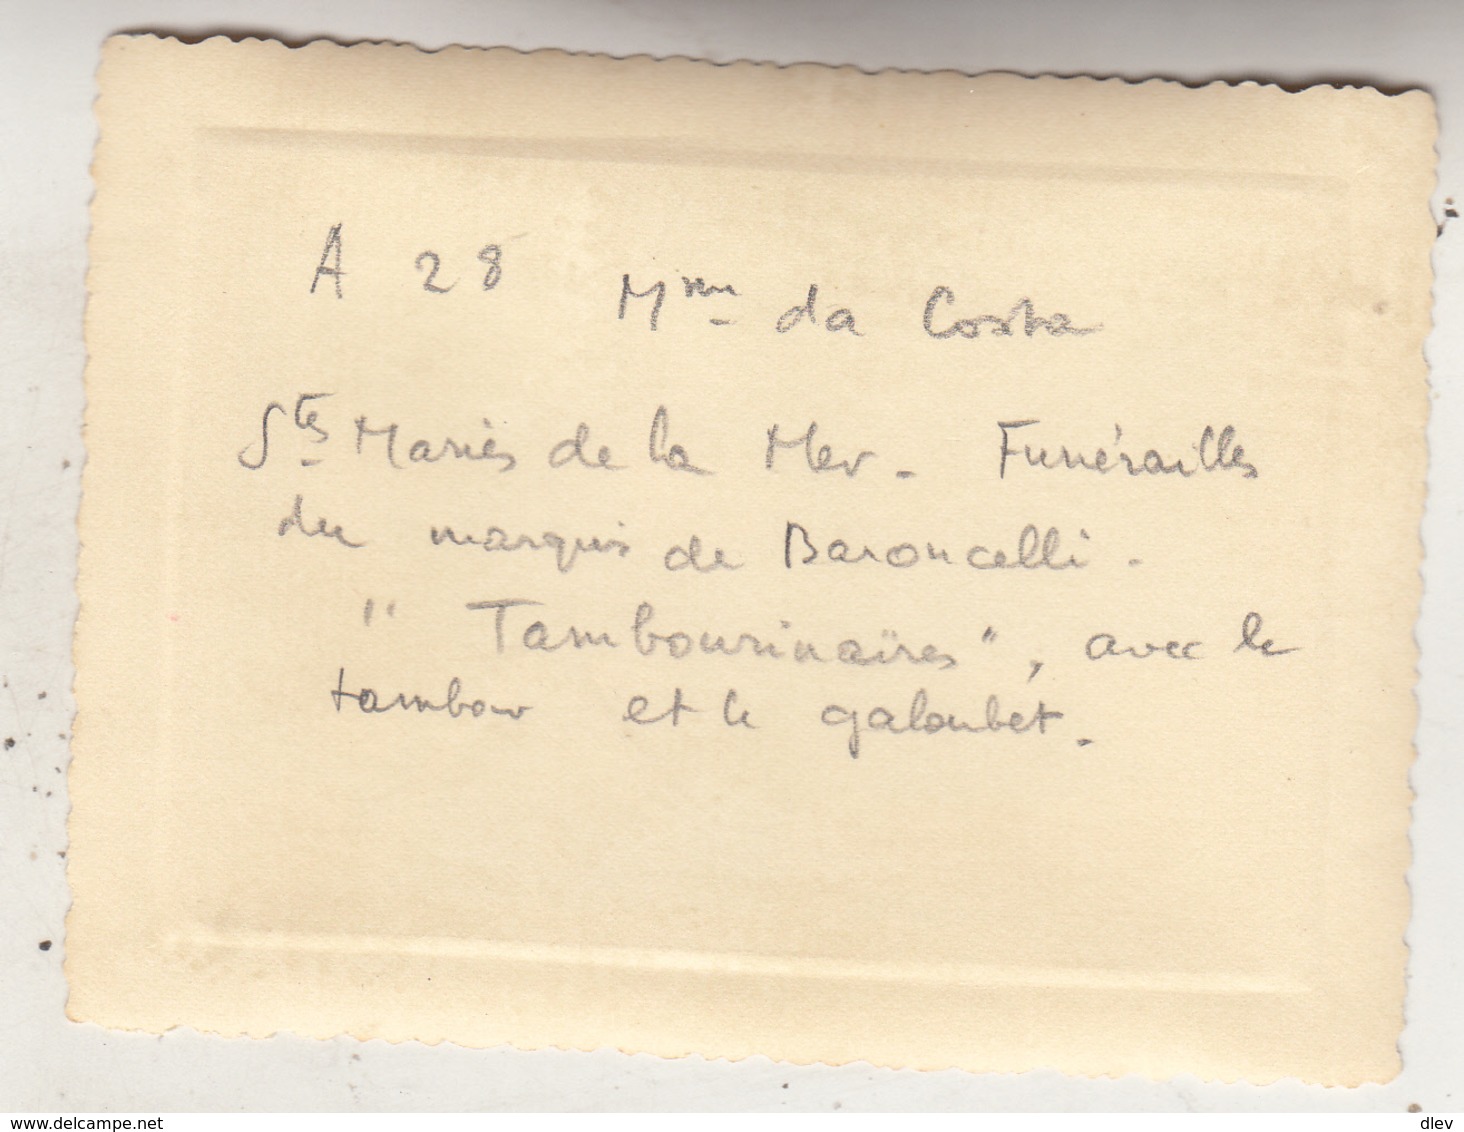 A 28 Mme da Costa
Stes Maries de la Mer - Funérailles
du marquis de Baroncelli -
" Tambourinaïres ", avec le
tambour et le galoubet.
delcampe.net
dlev